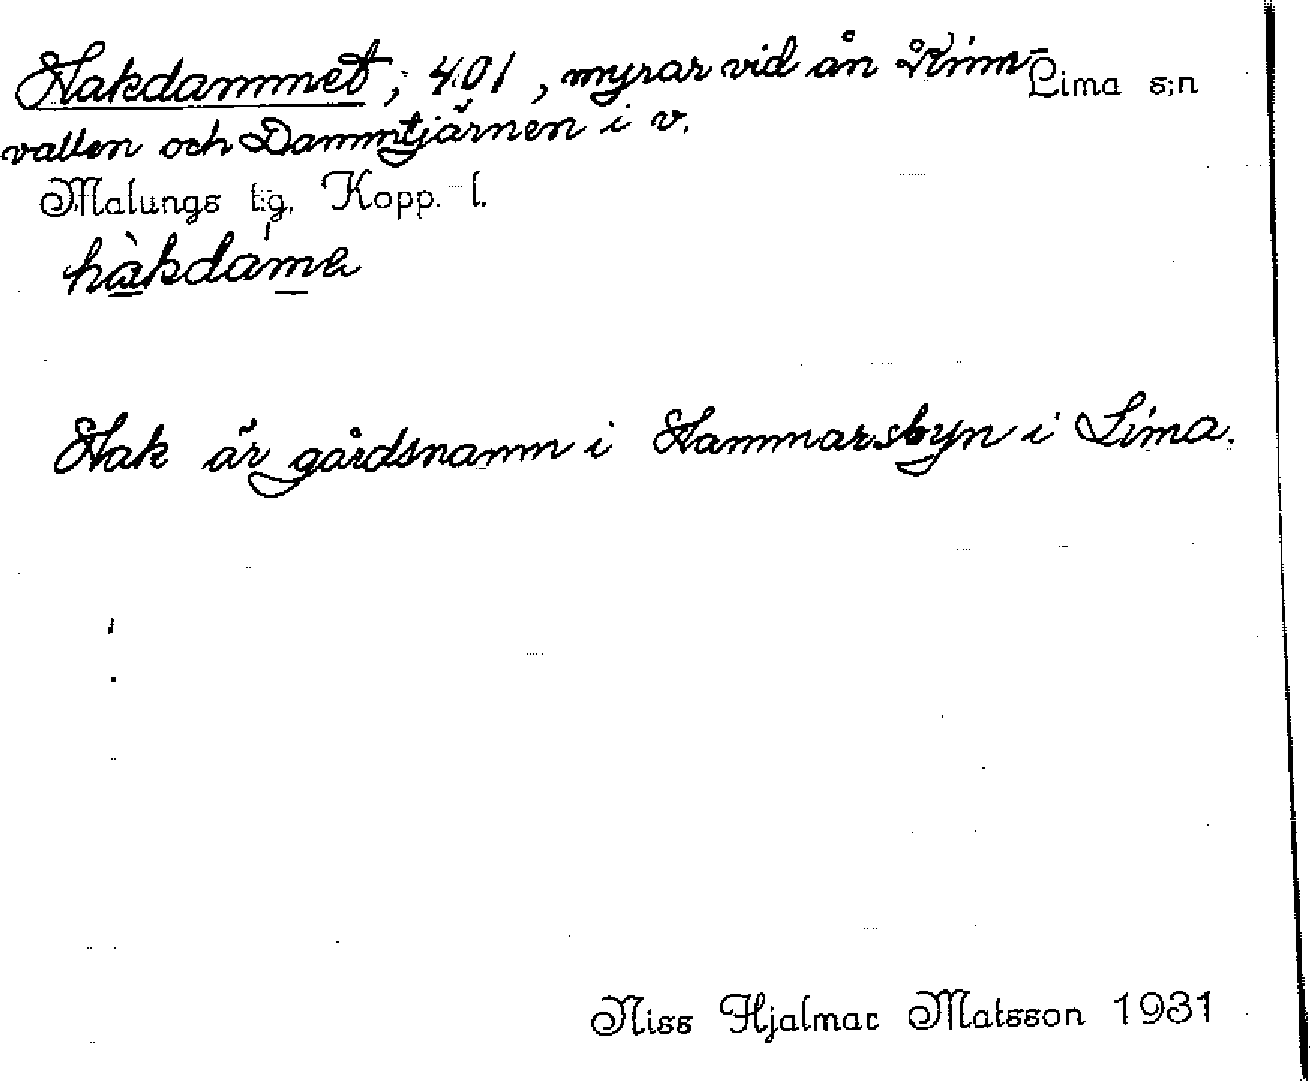 Hakdammet; 401, myrar vid ån Åkinn- Lima s:n
vallen och Dammtjärnen i v.
Malungs t:g. Kopp. l.
hàkdáma
Hak är gårdsnamn i Hammarsbyn i Lima.
Niss Hjalmar Matsson 1931